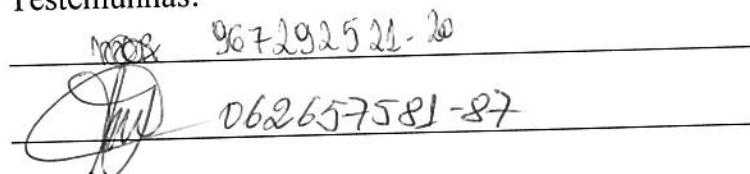 Testemunhas:
967292521-20
062657581-87